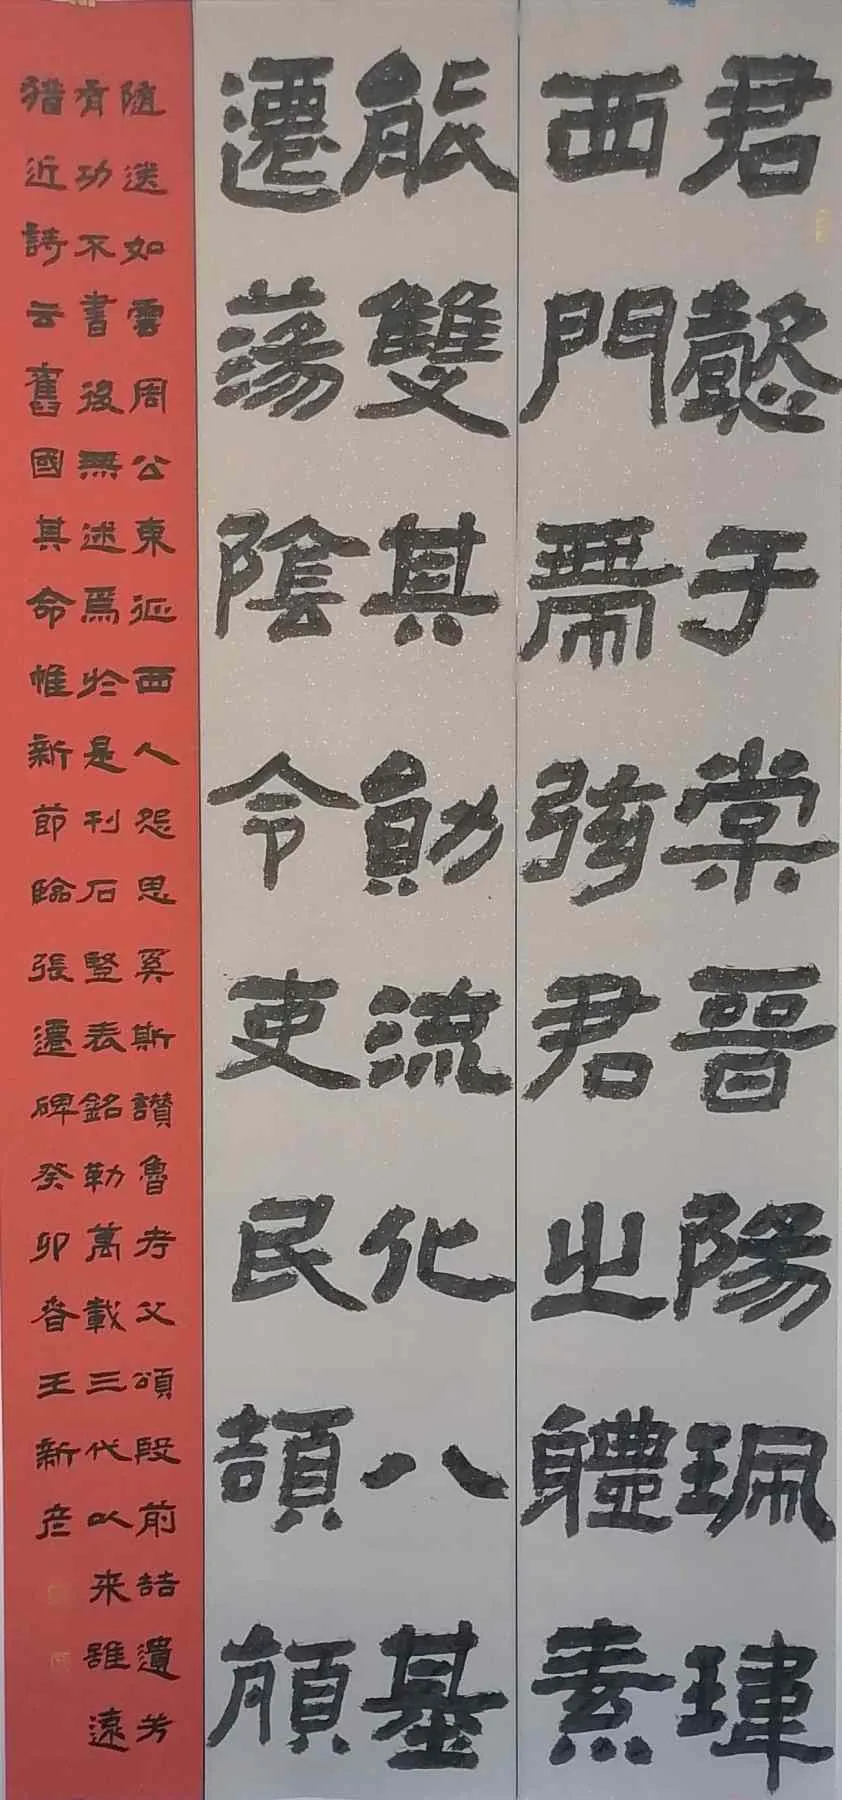 君懿于棠晉陽珮瑋
西門帶弦君之軆素
能雙其勛流化八基
遷蕩陰令吏民頡頏
隨送如雲周公東征西人怨思奚斯讃魯考父頌殷前喆遺芳
有功不書後無述焉於是刊石竪表銘勒萬載三代以来雖遠
猶近詩云舊國其命惟新節臨張遷碑癸卯春王新彦